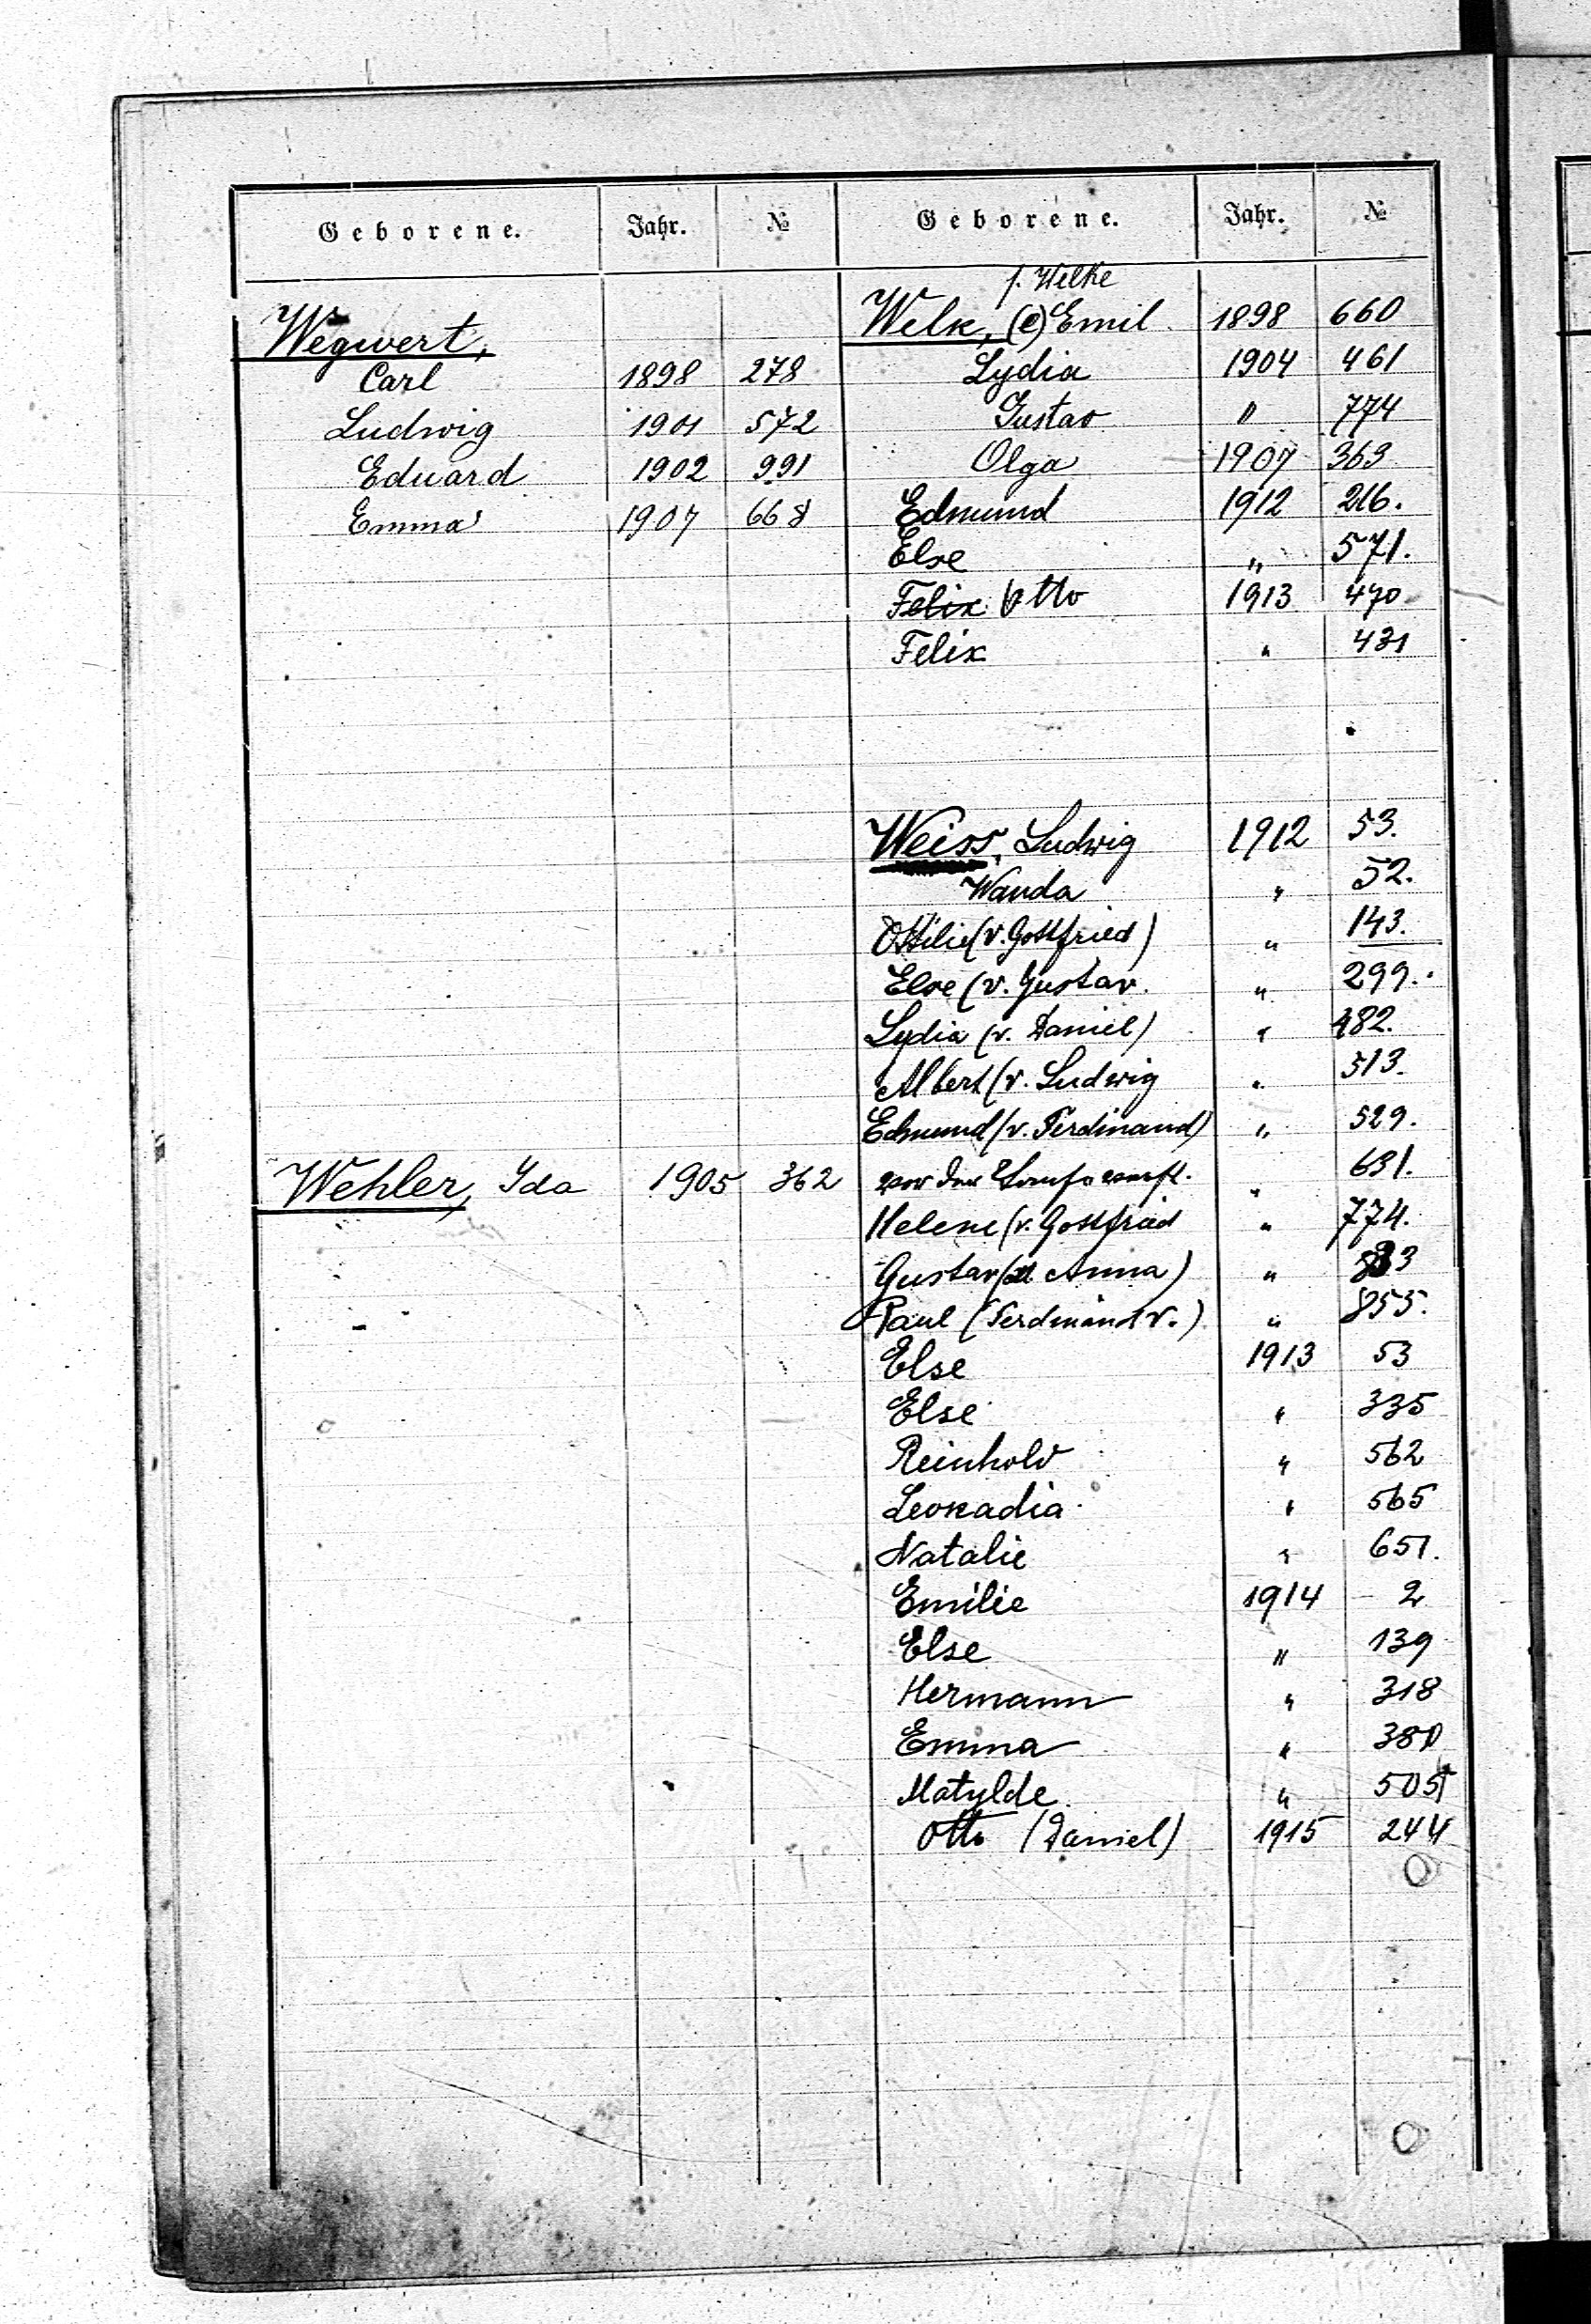 Geborene. Jahr. №
Wegwert,
Carl 1898 278
Ludwig 1901 572
Eduard 1902 991
Emma 1907 668
Wehler, Ida 1905 362
Geborene. Jahr. №
f. Welke
Welk, (e) Emil 1898 660
Lydia 1904 461
Gustav " 774
Olga 1907 363
Edmund 1912 216.
Else " 571.
Felix Otto 1913 470
Felix " 431
Weiss, Ludwig 1912 53.
Wanda " 52.
Ottilie (v. Gottfried) " 143.
Else (v. Gustav. " 299.
Lydia (v. Daniel) " 482.
Albert (v. Ludwig " 513.
Edmund (v. Ferdinand) " 529.
vor der " 631.
Helene (v. Gottfried " 774.
Gustav ( Anna) " 833
Paul (Ferdinand v.) " 855.
Else 1913 53
Else " 335
Reinhold " 562
Leokadia " 565
Natalie " 651.
Emilie 1914 2
Else " 139
Hermann " 318
Emma " 380
Matylde " 505
Otto (Daniel) 1915 244